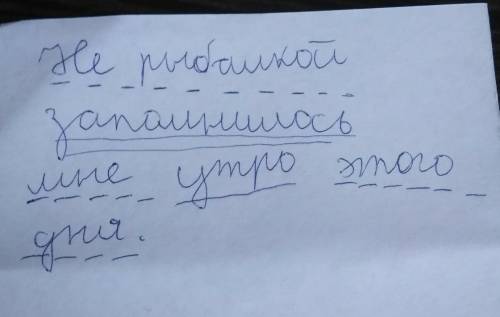 Не рыбалкой
запомнилось
мне утро этого
дня.